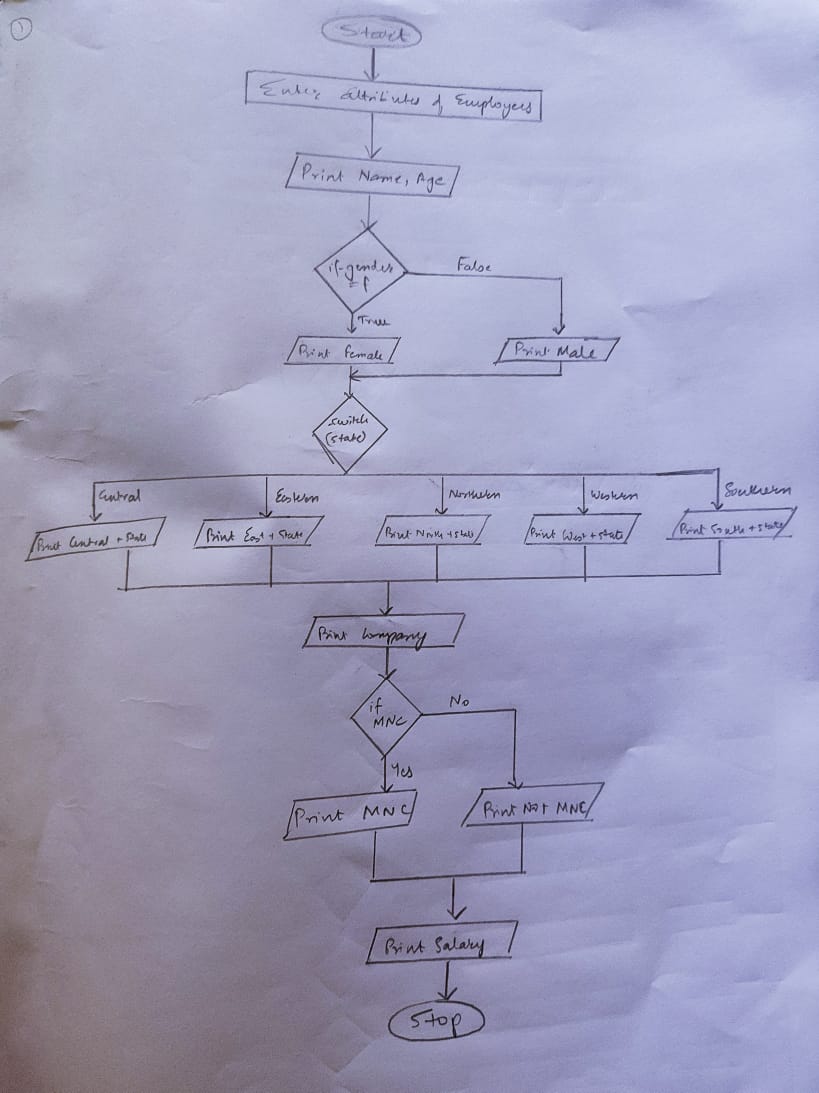 1
Start
Enter Attributes of Employees
Print Name, Age
if gender
= f
False
True
Print Female
Print Male
switch
(state)
Central
Eastern
Northern
Western
Southern
Print Central + State
Print East + State
Print North + State
Print West + State
Print South + State
Print Company
if
MNC
No
Yes
Print MNC
Print Not MNC
Print Salary
Stop